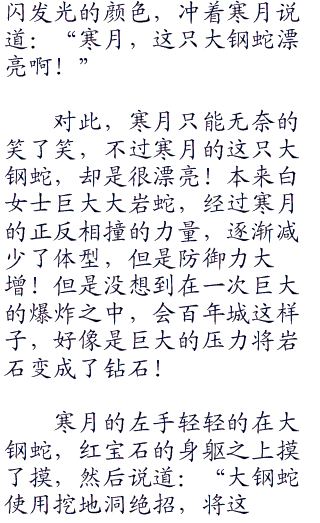 闪发光的颜色，冲着寒月说
道：“寒月，这只大钢蛇漂
亮啊！”
对此，寒月只能无奈的
笑了笑，不过寒月的这只大
钢蛇，却是很漂亮！本来白
女士巨大大岩蛇，经过寒月
的正反相撞的力量，逐渐减
少了体型，但是防御力大
增！但是没想到在一次巨大
的爆炸之中，会百年城这样
子，好像是巨大的压力将岩
石变成了钻石！
寒月的左手轻轻的在大
钢蛇，红宝石的身躯之上摸
了摸，然后说道：“大钢蛇
使用挖地洞绝招，将这